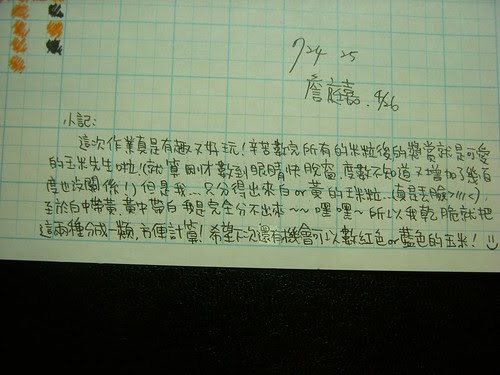 724 25
詹庭嘉 4/26
小記:
這次作業真是有趣又好玩!辛苦數完所有的米粒後的獎賞就是可愛
的玉米先生啦!(就算剛才數到眼睛快脫窗,度數不知道又增加了幾百
度也沒關係!)但是我...只分得出來白or黃的玉米粒...(真是丟臉>///<)
至於白中帶黃,黃中帶白我是完全分不出來~~嘿嘿~所以我乾脆就把
這兩種分成一類,方便計算!希望下次還有機會可以數紅色or藍色的玉米!